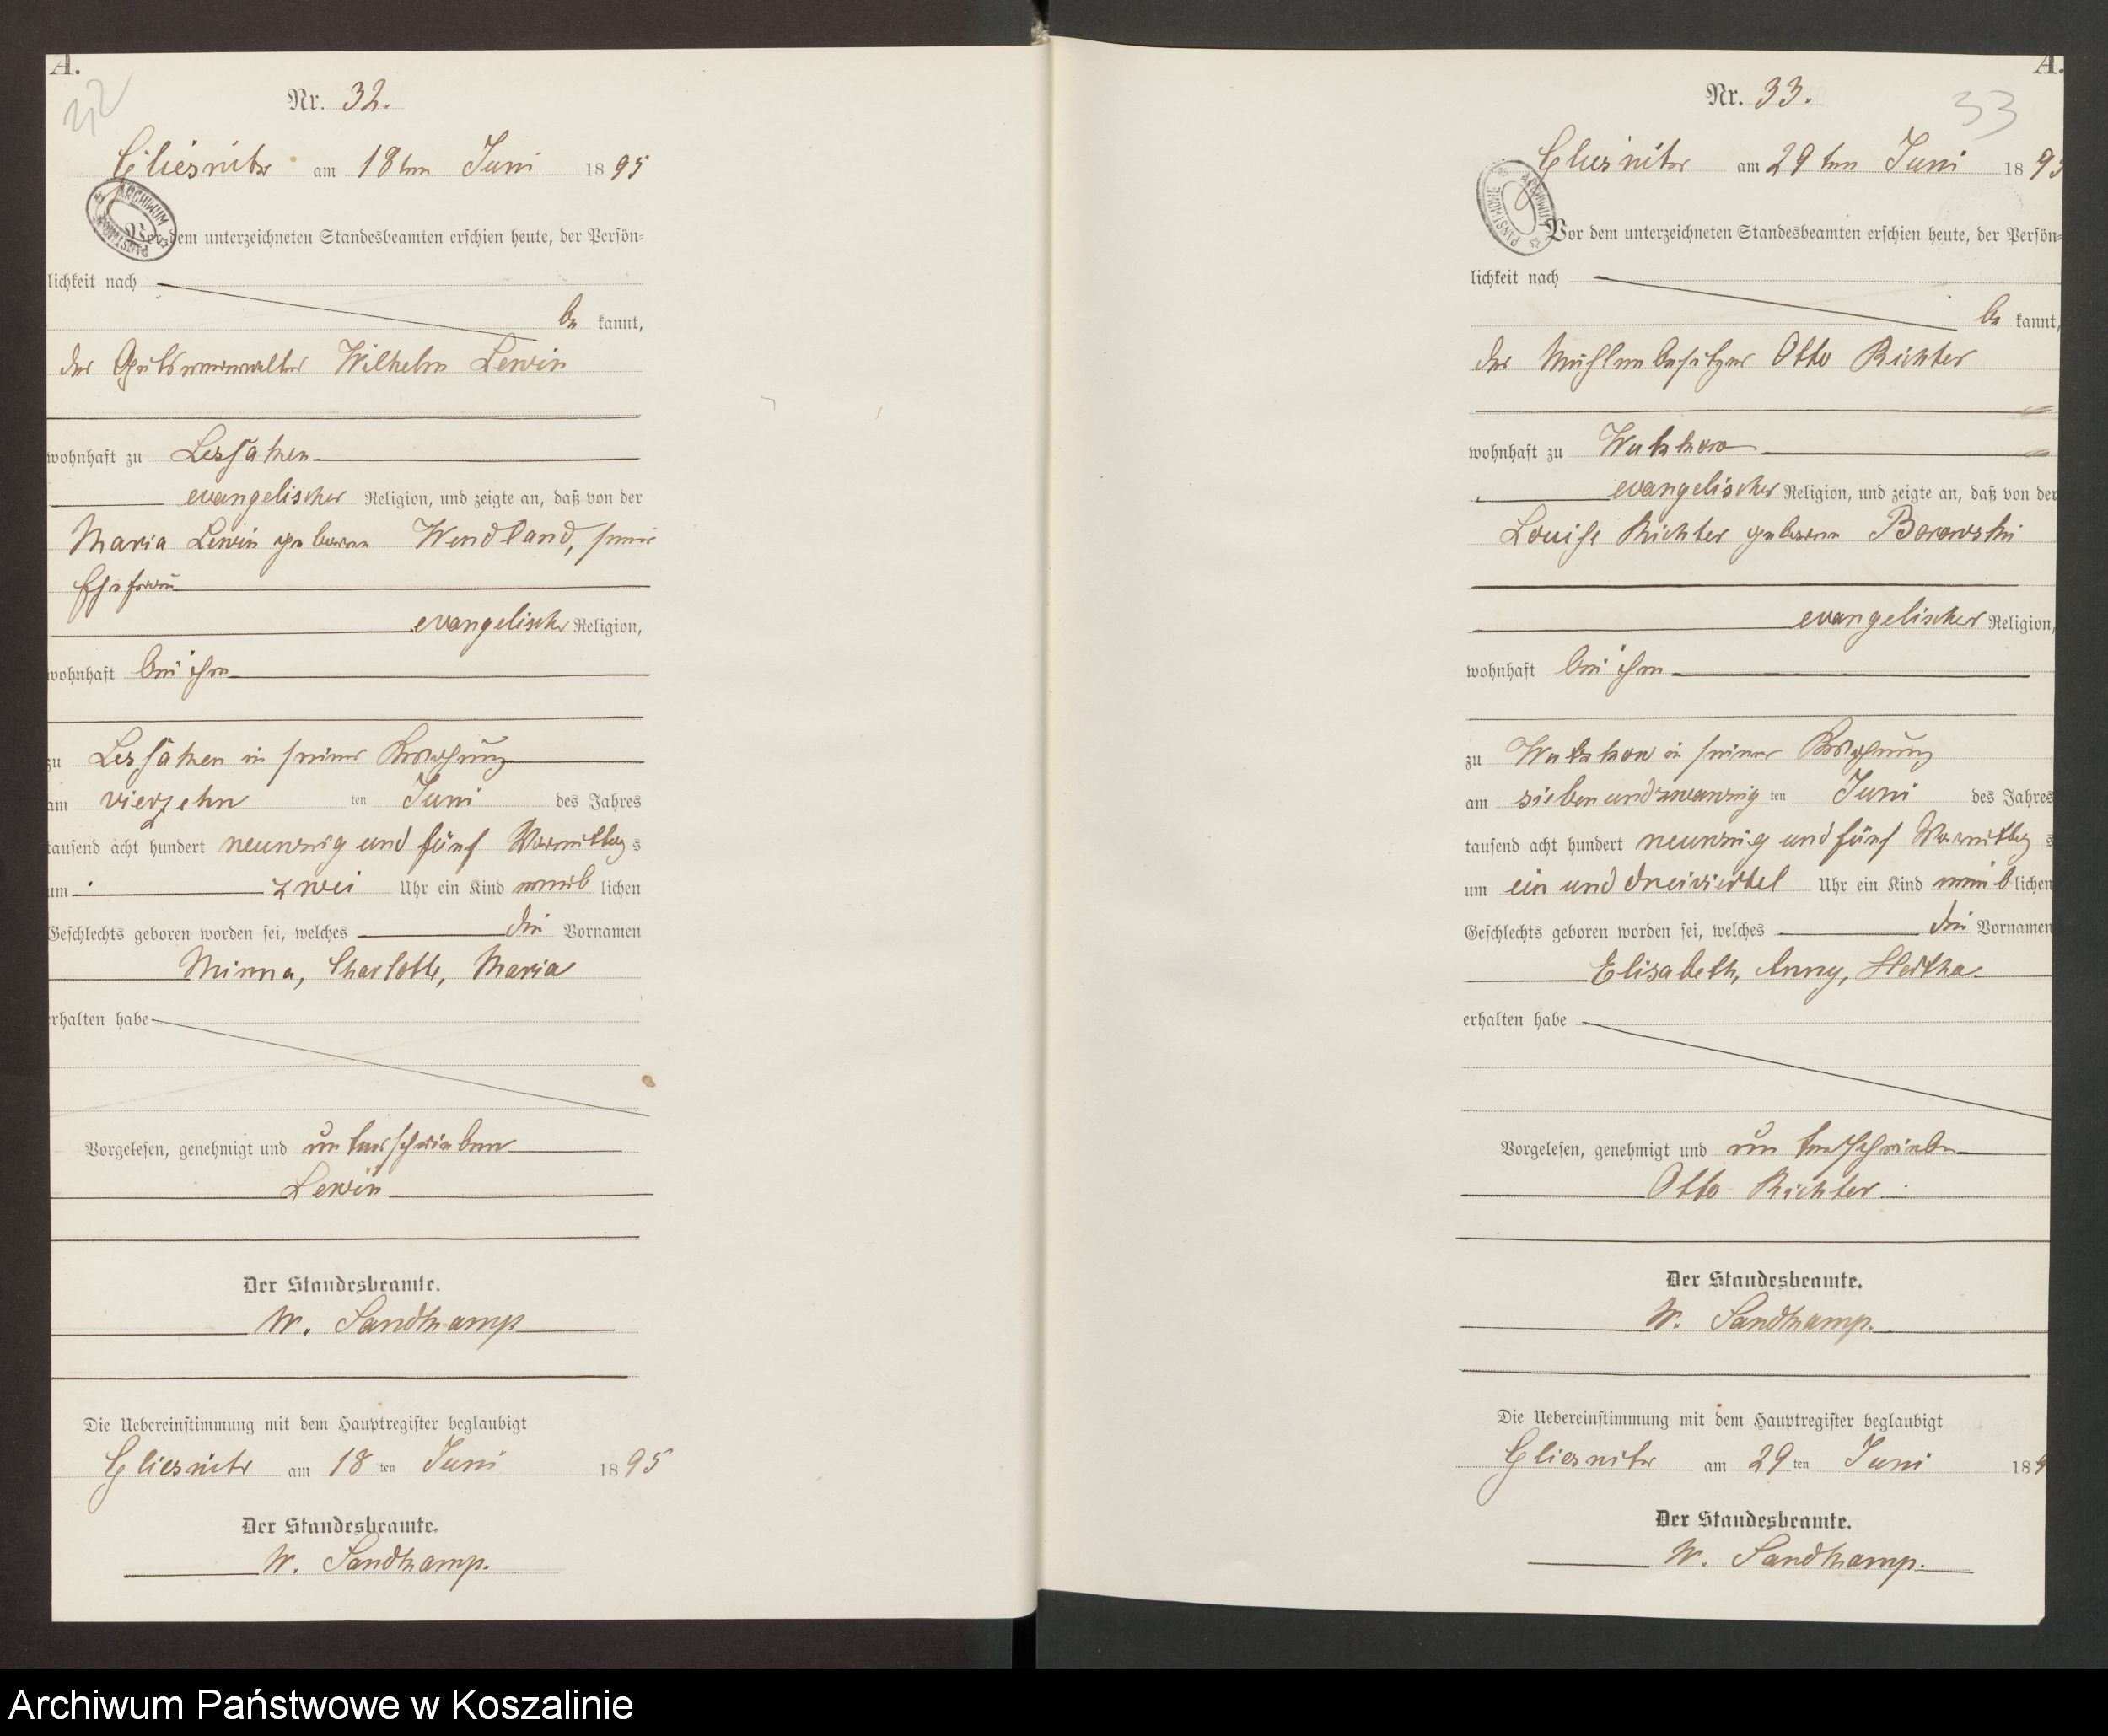 A.
32
Nr. 32.
Gliesnitz am 18ten Juni 1895
ARCHIWUM PAŃSTWOWE
Vor dem unterzeichneten Standesbeamten erschien heute, der Persön=
lichkeit nach
be kannt,
der Gutsverwalter Wilhelm Lewin
wohnhaft zu Lessaken
evangelischer Religion, und zeigte an, daß von der
Maria Lewin geborene Wendland, seiner
Ehefrau
evangelischer Religion,
wohnhaft bei ihm
zu Lessaken in seiner Wohnung
am vierzehn ten Juni des Jahres
tausend acht hundert neunzig und fünf Vormittag s
um zwei Uhr ein Kind weib lichen
Geschlechts geboren worden sei, welches die Vornamen
Minna, Charlotte, Maria
erhalten habe
Vorgelesen, genehmigt und unterschrieben
Lewin
Der Standesbeamte.
W. Sandkamp
Die Uebereinstimmung mit dem Hauptregister beglaubigt
Gliesnitz am 18 ten Juni 1895
Der Standesbeamte.
W. Sandkamp.
A.
33
Nr. 33.
Gliesnitz am 29ten Juni 189
ARCHIWUM PAŃSTWOWE
Vor dem unterzeichneten Standesbeamten erschien heute, der Persön=
lichkeit nach
be kannt,
der Mühlenbesitzer Otto Richter
wohnhaft zu Wutzkow
evangelischer Religion, und zeigte an, daß von der
Louise Richter geborene Borowski
evangelischer Religion,
wohnhaft bei ihm
zu Wutzkow in seiner Wohnung
am siebenundzwanzig ten Juni des Jahres
tausend acht hundert neunzig und fünf Vormittag s
um ein und dreiviertel Uhr ein Kind weib lichen
Geschlechts geboren worden sei, welches die Vornamen
Elisabeth, Anny, Hertha.
erhalten habe
Vorgelesen, genehmigt und unterschrieben
Otto Richter
Der Standesbeamte.
W. Sandkamp.
Die Uebereinstimmung mit dem Hauptregister beglaubigt
Gliesnitz am 29 ten Juni 189
Der Standesbeamte.
W. Sandkamp.
Archiwum Państwowe w Koszalinie